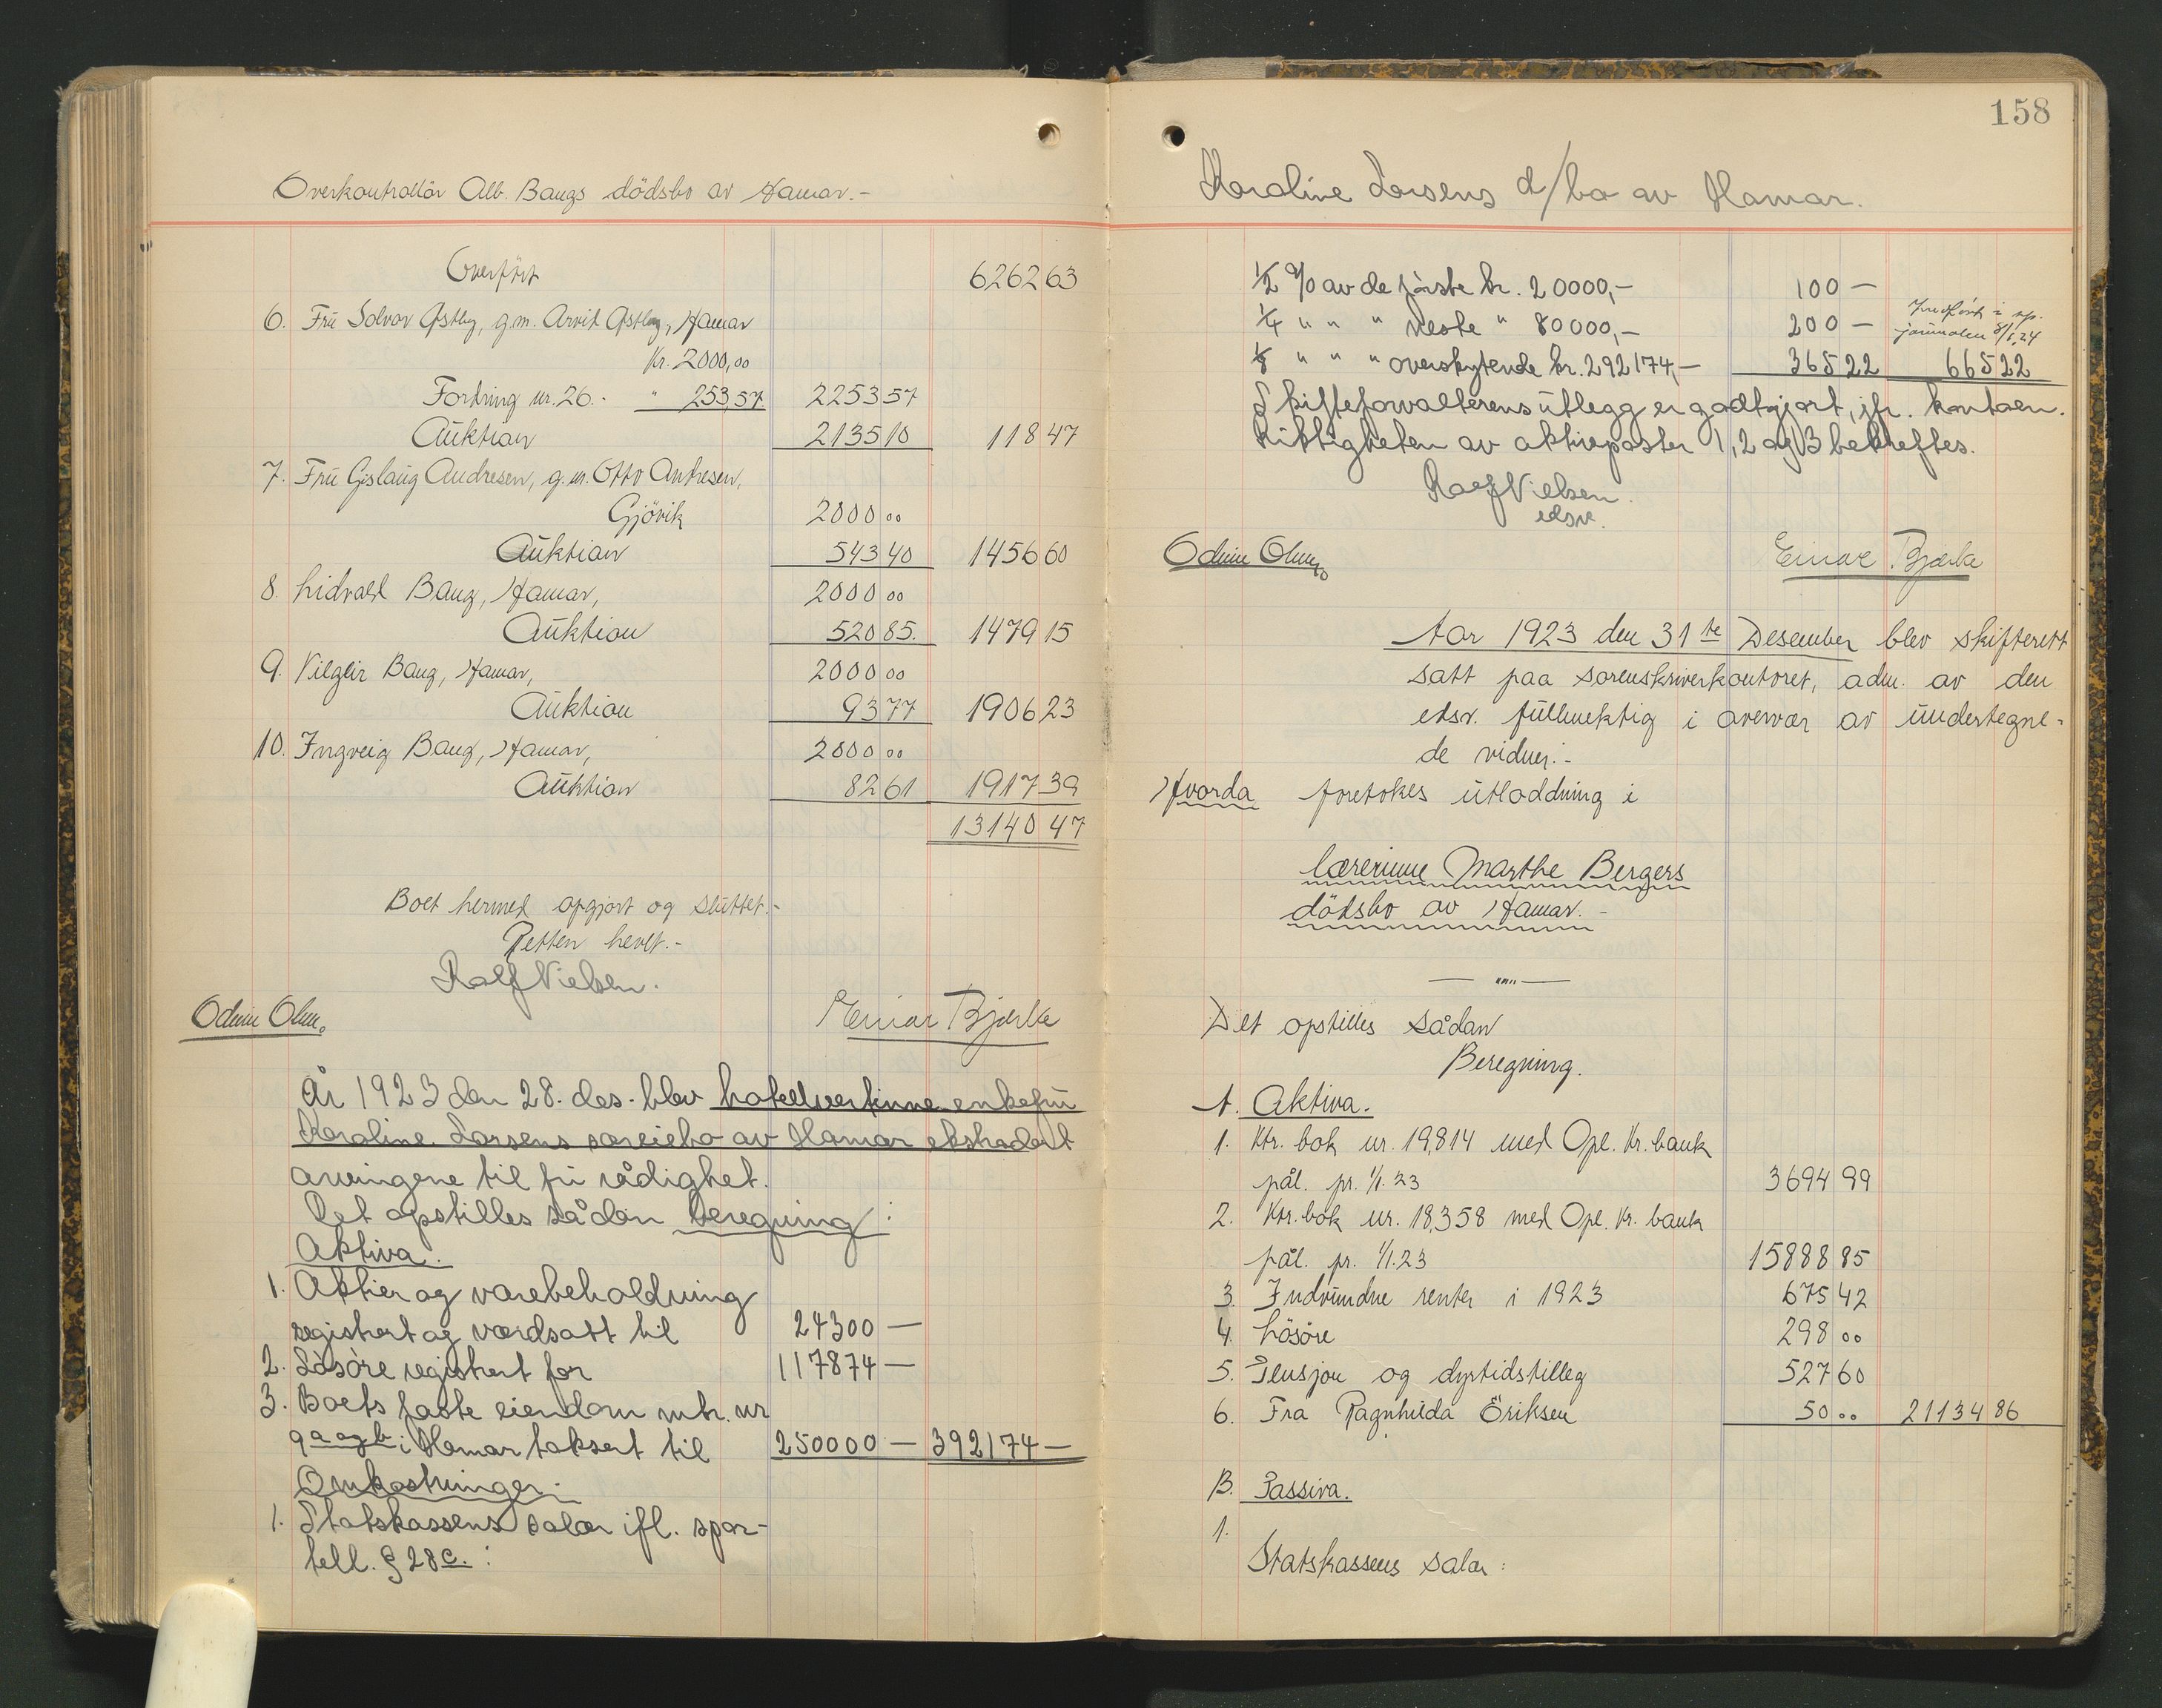 Overkontrollör Alb. Baugs dödsbo av Hamar.-
Overført 6262 63
6. Frü Solvor Østby, g.m. Arvid Østby, Hamar
Kr. 2000,00
Fordring nr. 26. - " 253,57 2253 57
Aüktion 2135 10 118 47
7. Frü Gislaüg Andresen, g.m. Otto Andresen,
Gjövik 2000 00
Aüktion 543 40 1456 60
8. Lidvald Baug, Hamar, 2000 00
Aüktion 520 85. 1479 15
9. Vilgeir Baug, Hamar, 2000 00
Aüktion 93 77 1906 23
10. Ingveig Baug, Hamar, 2000 00
Aüktion 82 61 1917 39
13140 47
Boet hermed opgjort og slüttet.-
Retten hevet.-
Rolf Nielsen.
Odin Olsen. Einar Bjerke
År 1923 den 28. des. blev hotellvertinne enkefrü
Karoline Larsens særeiebo av Hamar ekstradert
arvingene til fri rådighet.
Det opstilles sådan beregning:
Aktiva.
1. Aktier og varebeholdning
registrert og værdsatt til 24300 —
2. Løsøre registrert for 117874 —
3. Boets faste eiendom mtr. nr
9 a og b i Hamar taksert til 250000 — 392174 —
Omkostninger:
1. Statskassens salær ifl. spor-
tell. § 28 c. :
158
Karoline Larsens d/bo av Hamar.
1/2 % av de første kr. 20000,- 100 —
1/4 " " " neste " 80000,- 200 —
Indført i sp.
journalen 8/1.24
1/8 " " " overskytende kr. 292174,- 365 22 665 22
Skifteforvalterens ütlegg er godtgjort, jfr. kontoen.
Riktigheten av aktivposter 1, 2 og 3 bekreftes.
Rolf Nielsen.
edsv.
Odin Olsen Einar Bjerke
Aar 1923 den 31te Desember blev skifterett
satt paa sorenskriverkontoret, adm. av den
edsv. füllmektig i overvær av ündertegne-
de vidner:-
Hvorda foretokes ütloddning i
lærerinne Marthe Bergers
dödsbo av Hamar.-
— "" —
Det opstilles sådan
Beregning.
A. Aktiva.
1. Ktr. bok nr. 19,814 med Opl. Kr. bank
pål. pr. 1/1.23 3694 99
2. Ktr. bok nr. 18,358 med Opl. Kr. bank
pål. pr. 1/1.23 15888 85
3. Indvündne renter i 1923 675 42
4. Lösöre 298 00
5. Pensjon og dyrtidstilleg 527 60
6. Fra Ragnhilda Eriksen 50 00 21134 86
B. Passiva.
1.
Statskassens salær :